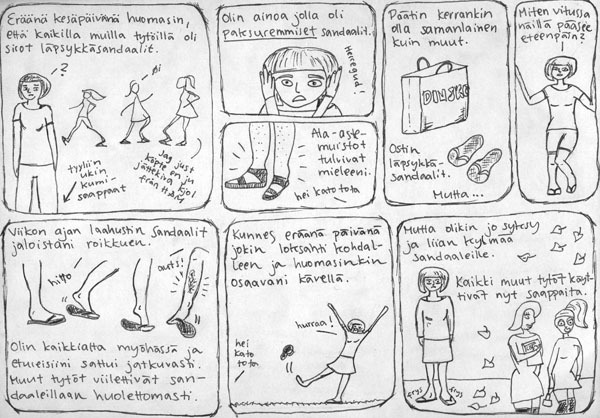 Eräänä kesäpäivänä huomasin,
että kaikilla muilla tytöillä oli
siot läpsykkäsandaalit.
?
Bi
tyyliin
ukin
kumi-
saappaat
Jag just
köpte en ny
jättekiva kjol
från H&M
Olin ainoa jolla oli
paksuremmiset sandaalit.
Herregud!
Ala-aste-
muistot
tulvivat
mieleeni.
hei kato tota
Päätin kerrankin
olla samanlainen
kuin muut.
DINSKO
Ostin
läpsykkä-
sandaalit.
Mutta...
Miten vitussa
näillä pääsee
eteenpäin?
Viikon ajan laahustin sandaalit
jaloistani roikkuen.
hitto
auts!
Olin kaikkialta myöhässä ja
etureisiini sattui jatkuvasti.
Muut tytöt viilettivät san-
daaleillaan huolettomasti.
Kunnes eräänä päivänä
jokin loksahti kohdal-
leen ja huomasinkin
osaavani kävellä.
hurraa!
hei
kato
tota
Mutta olikin jo syksy
ja liian kylmää
sandaaleille.
Kaikki muut tytöt käyt-
tivät nyt saappaita.
frys
frys